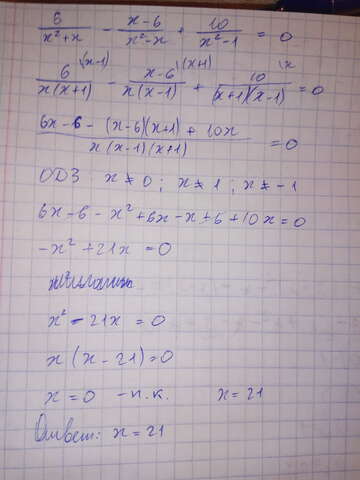 6/(x²+x) - (x-6)/(x²-x) + 10/(x²-1) = 0
6\(x-1)/(x(x+1)) - x-6\(x+1)/(x(x-1)) + 10\x/((x+1)(x-1)) = 0
(6x-6-(x-6)(x+1)+10x)/(x(x-1)(x+1)) = 0
ОДЗ: x≠0; x≠1; x≠-1
6x-6-x²+6x-x+6+10x=0
-x²+21x=0
x²-21x=0
x(x-21)=0
x=0 -п.к. x=21
Ответ: x=21